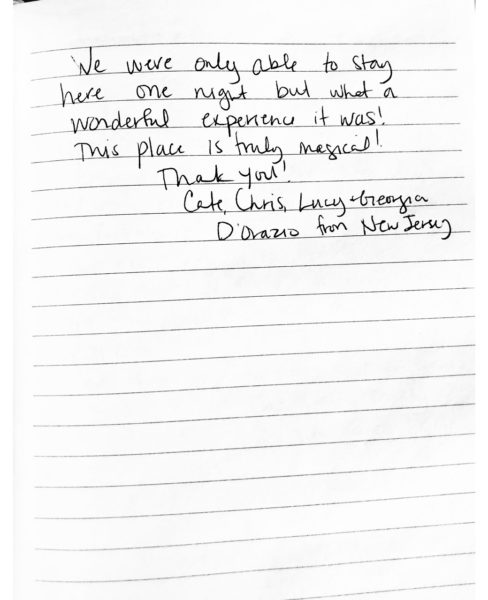 We were only able to stay
here one night but what a
wonderful experience it was!
This place is truly magical!
Thank you!
Cate, Chris, Lucy + Georgia
D'Orazio from New Jersey